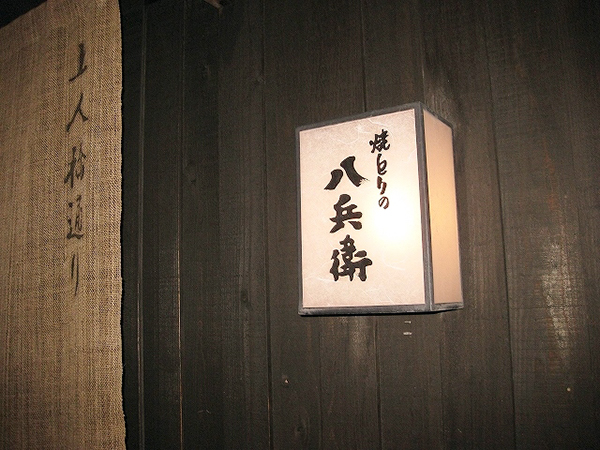 上人橋通り
焼とりの
八兵衛